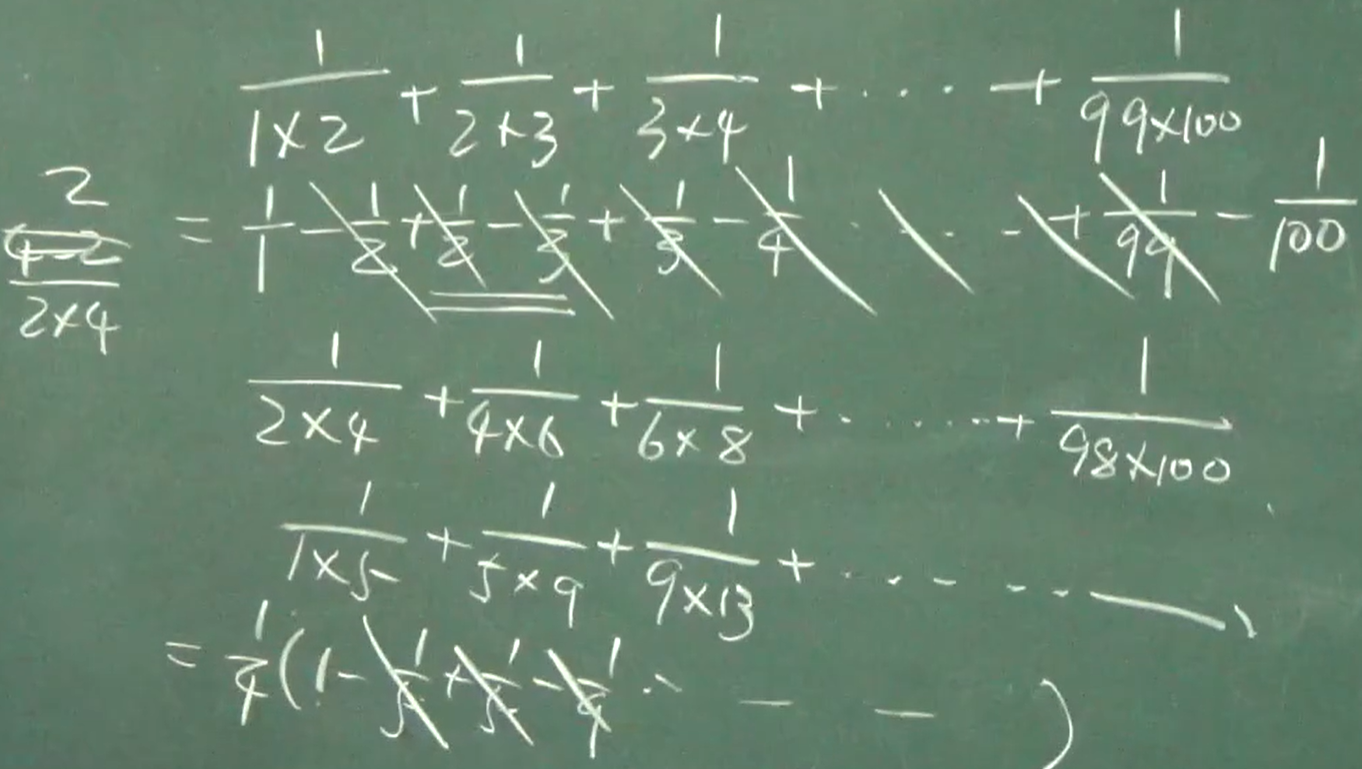 1/(1×2) + 1/(2×3) + 1/(3×4) + ···· + 1/(99×100)
= 1/1 - 1/2 + 1/2 - 1/3 + 1/3 - 1/4 ····· + 1/99 - 1/100
2
4-2
2×4
1/(2×4) + 1/(4×6) + 1/(6×8) + ····· + 1/(98×100)
1/(1×5) + 1/(5×9) + 1/(9×13) + ······
= 1/4 (1 - 1/5 + 1/5 - 1/9 ···· )